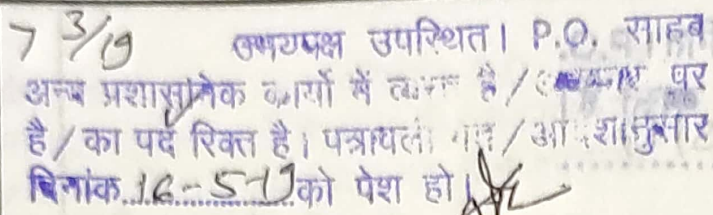 7 3/19 उभयपक्ष उपस्थित। P.O. साहब
अन्य प्रशासनिक कार्यो में व्यस्त है / अवकाश पर
है / का पद रिक्त है। पत्रावली / आदेशानुसार
दिनांक 16-5-19 को पेश हो।